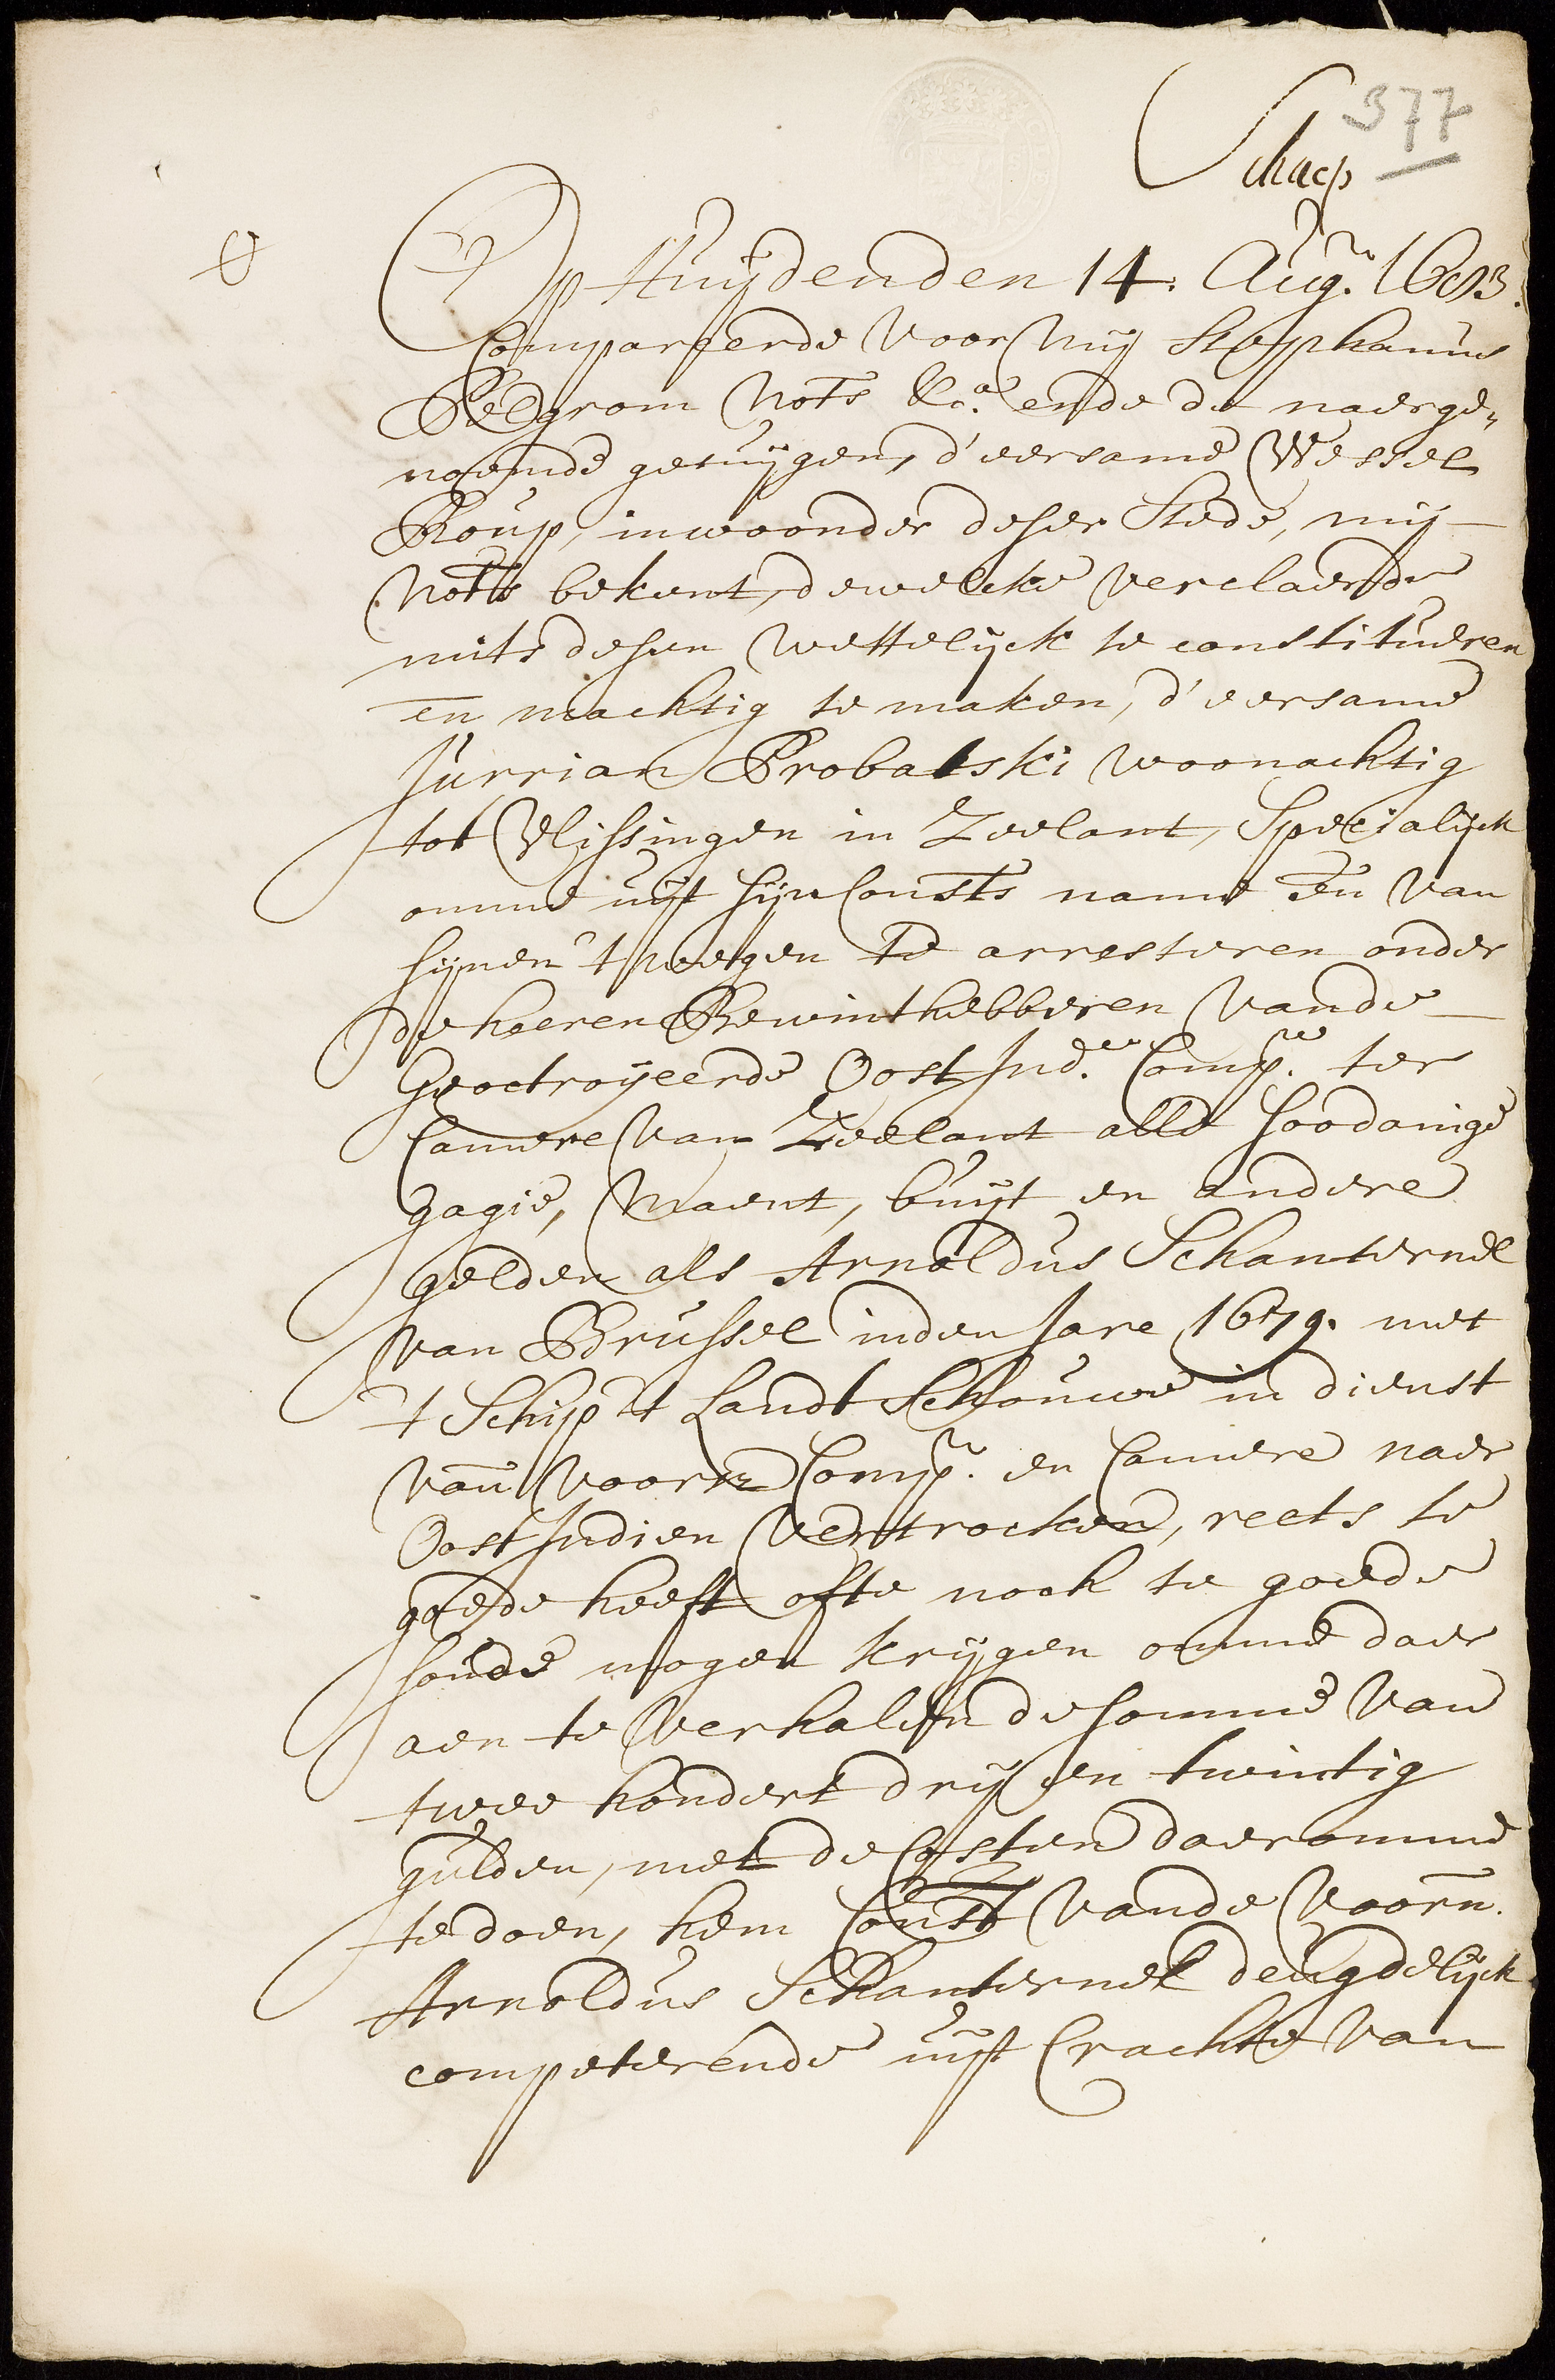 377
Schaep
Op Huijden den 14. Aug. 1683.
Compareerde voor mij Stephanus
Pelgrom Nots &ca. ende de naerge„
noemde getuijgen, d'eersame Wessel
Roup, inwoonder deser Stede, mij
Nots bekent, dewelcke verclaerde
mits desen wettelijck te constitueren
en machtig te maken, d'eersame
Jurrian Probatski woonachtig
tot Vlissingen in Zeelant, Specialijck
omme uijt sijn Consts name en van
sijnen 't weegen te arresteren onder
de heeren Bewinthebberen vande
Geoctroijeerde Oost Ind. Comp. ter
Camere van Zeelant alle soodanige
gagie, Maent, buijt en andere
gelden als Arnoldus Schanternel
van Brussel inden Jare 1679. met
't Schip 't Landt Schouwe in dienst
van voorn Comp. en Camere naer
Oost Indien vertrocken, reets te
goede heeft ofte noch te goede
soude mogen krijgen omme daer
aen te verhalen de somme van
twee hondert drij en twintig
gulden, met de Costen daeromme
te doen, hem Const vande voorn.
Arnoldus Schanternel deugdelijck
competerende uijt Crachte van